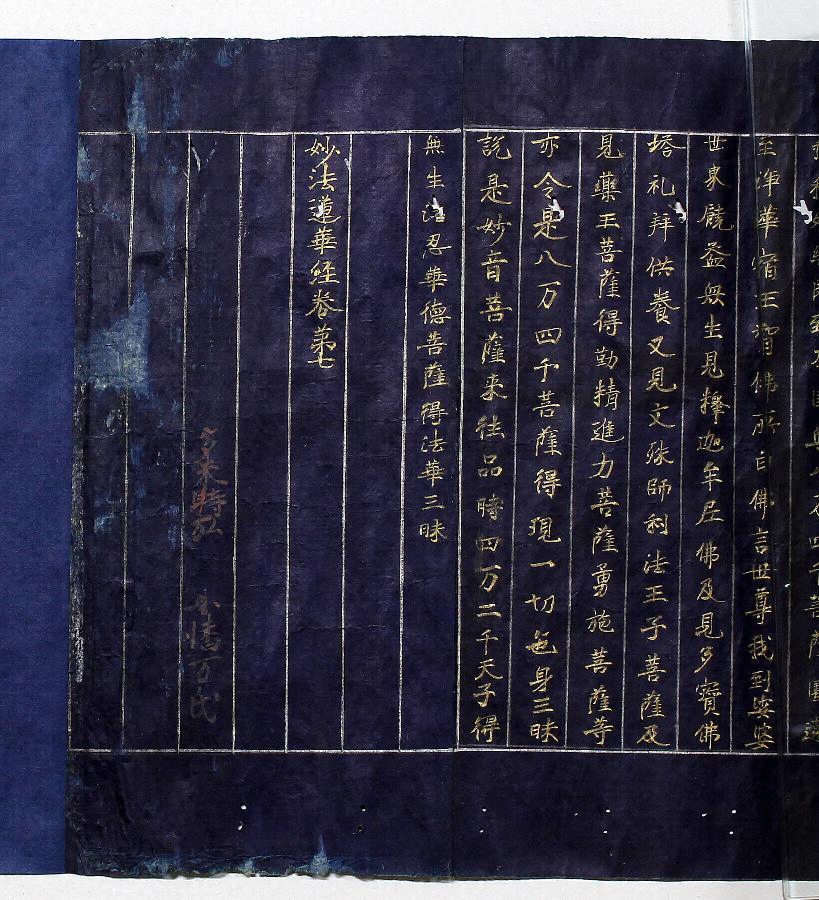 至淨華宿王智佛所白佛言世尊我到娑婆
世界饒益眾生見釋迦牟尼佛及見多寶佛
塔礼拜供養又見文殊師利法王子菩薩及
見藥王菩薩得勤精進力菩薩勇施菩薩等
亦令是八万四千菩薩得現一切色身三昧
說是妙音菩薩来徃品時四万二千天子得
無生法忍華德菩薩得法華三昧
妙法蓮華經卷苐七